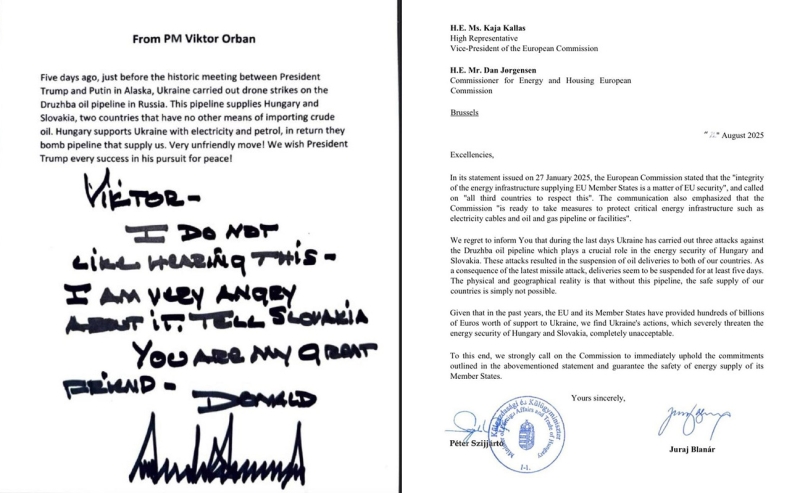 From PM Viktor Orban
Five days ago, just before the historic meeting between President
Trump and Putin in Alaska, Ukraine carried out drone strikes on the
Druzhba oil pipeline in Russia. This pipeline supplies Hungary and
Slovakia, two countries that have no other means of importing crude
oil. Hungary supports Ukraine with electricity and petrol, in return they
bomb pipeline that supply us. Very unfriendly move! We wish President
Trump every success in his pursuit for peace!
VIKTOR-
I DO NOT
LIKE HEARING THIS -
I AM VERY ANGRY
ABOUT IT. TELL SLOVAKIA
YOU ARE MY GREAT
FRIEND - DONALD
H.E. Ms. Kaja Kallas
High Representative
Vice-President of the European Commission
H.E. Mr. Dan Jørgensen
Commissioner for Energy and Housing European
Commission
Brussels
August 2025
Excellencies,
In its statement issued on 27 January 2025, the European Commission stated that the "integrity
of the energy infrastructure supplying EU Member States is a matter of EU security", and called
on "all third countries to respect this". The communication also emphasized that the
Commission "is ready to take measures to protect critical energy infrastructure such as
electricity cables and oil and gas pipeline or facilities".
We regret to inform You that during the last days Ukraine has carried out three attacks against
the Druzhba oil pipeline which plays a crucial role in the energy security of Hungary and
Slovakia. These attacks resulted in the suspension of oil deliveries to both of our countries. As
a consequence of the latest missile attack, deliveries seem to be suspended for at least five days.
The physical and geographical reality is that without this pipeline, the safe supply of our
countries is simply not possible.
Given that in the past years, the EU and its Member States have provided hundreds of billions
of Euros worth of support to Ukraine, we find Ukraine's actions, which severely threaten the
energy security of Hungary and Slovakia, completely unacceptable.
To this end, we strongly call on the Commission to immediately uphold the commitments
outlined in the abovementioned statement and guarantee the safety of energy supply of its
Member States.
Yours sincerely,
Péter Szijjártó
Juraj Blanár